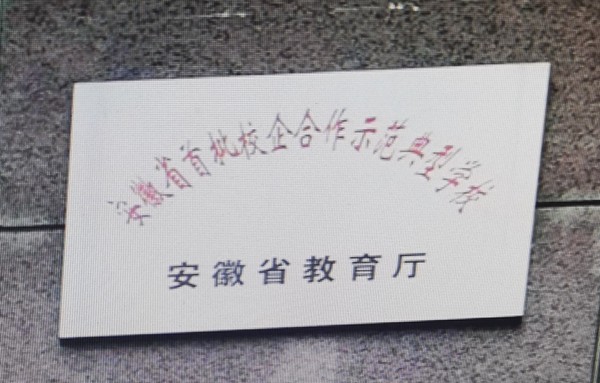 安徽省首批校企合作示范典型学校
安徽省教育厅